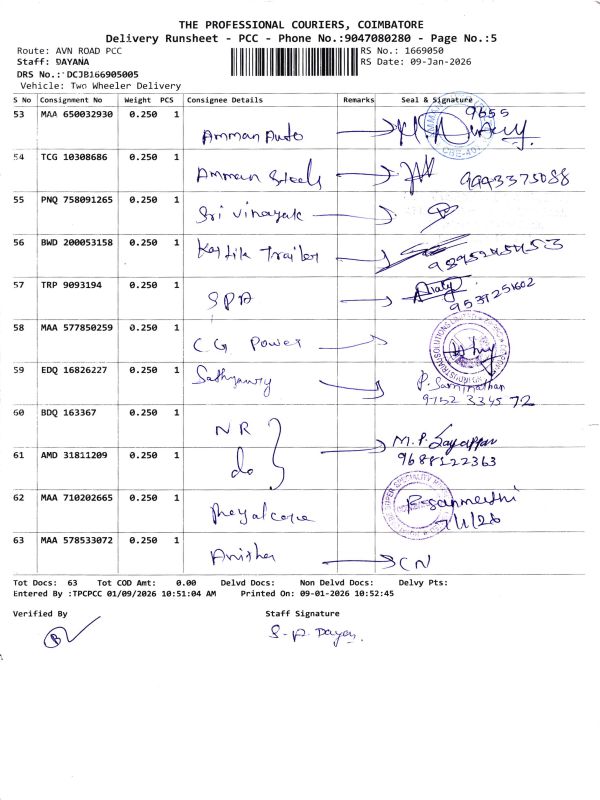 THE PROFESSIONAL COURIERS, COIMBATORE
Delivery Runsheet - PCC - Phone No.:9047080280 - Page No.:5
Route: AVN ROAD PCC
RS No.: 1669050
Staff: DAYANA
RS Date: 09-Jan-2026
DRS No.: DCJB166905005
Vehicle: Two Wheeler Delivery
S No Consignment No Weight PCS Consignee Details Remarks Seal & Signature
53 MAA 650032930 0.250 1 Amman Auto 9655
54 TCG 10308686 0.250 1 Amman Steels 9943375088
55 PNQ 758091265 0.250 1 Sri Vinayak
56 BWD 200053158 0.250 1 Kartik Trailer
57 TRP 9093194 0.250 1 SPA
58 MAA 577850259 0.250 1 CG Power
59 EDQ 16826227 0.250 1 P. Saminathan
60 BDQ 163367 0.250 1 NR
61 AMD 31811209 0.250 1 do 9688122363
62 MAA 710202665 0.250 1
63 MAA 578533072 0.250 1 CN
Tot Docs: 63 Tot COD Amt: 0.00 Delvd Docs: Non Delvd Docs: Delvy Pts:
Entered By :TPCPCC 01/09/2026 10:51:04 AM Printed On: 09-01-2026 10:52:45
Verified By Staff Signature